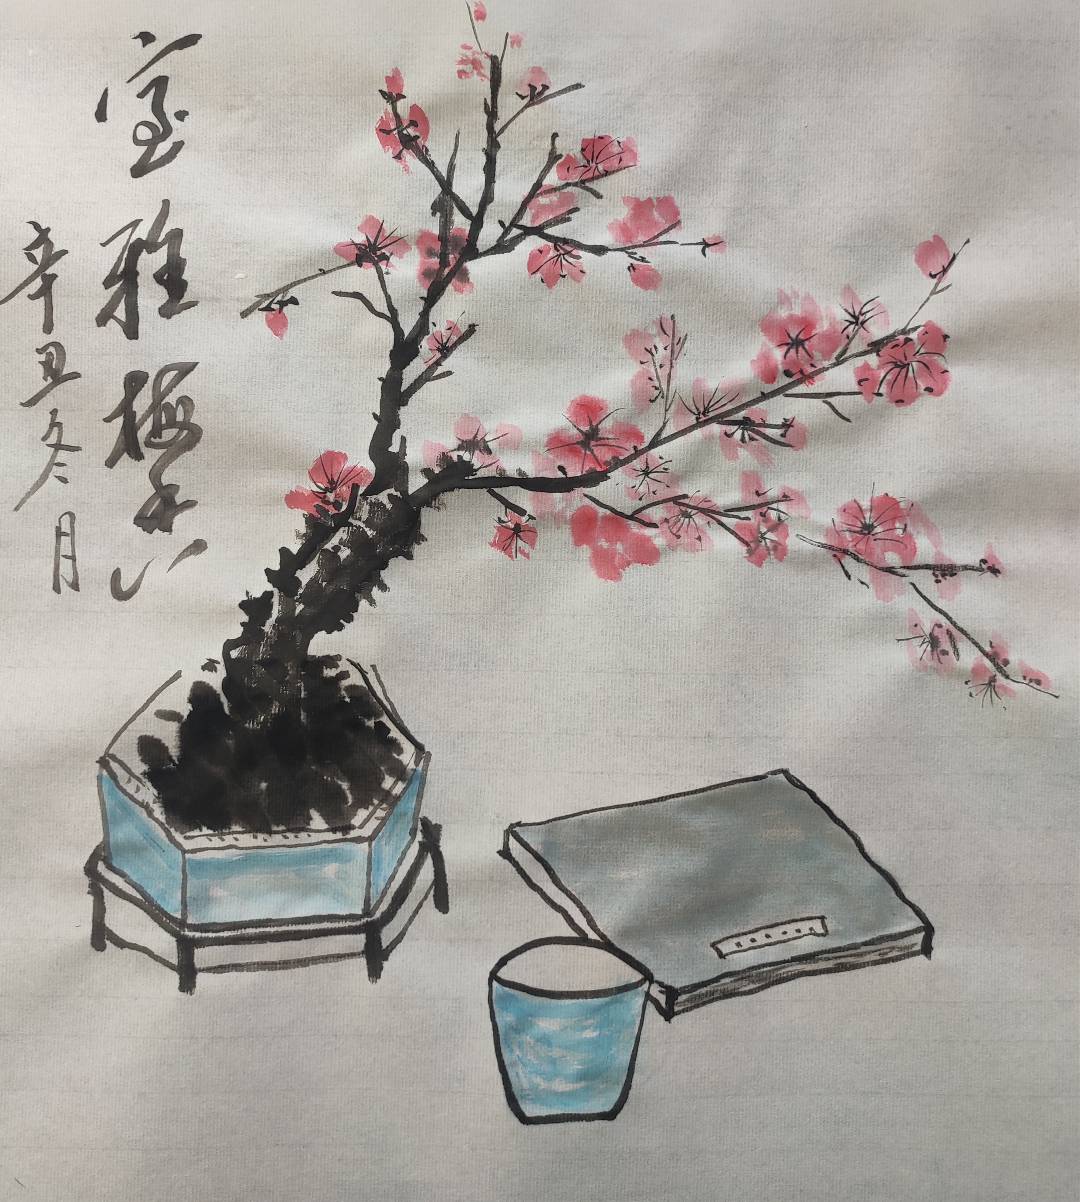 室雅梅香
辛丑冬月